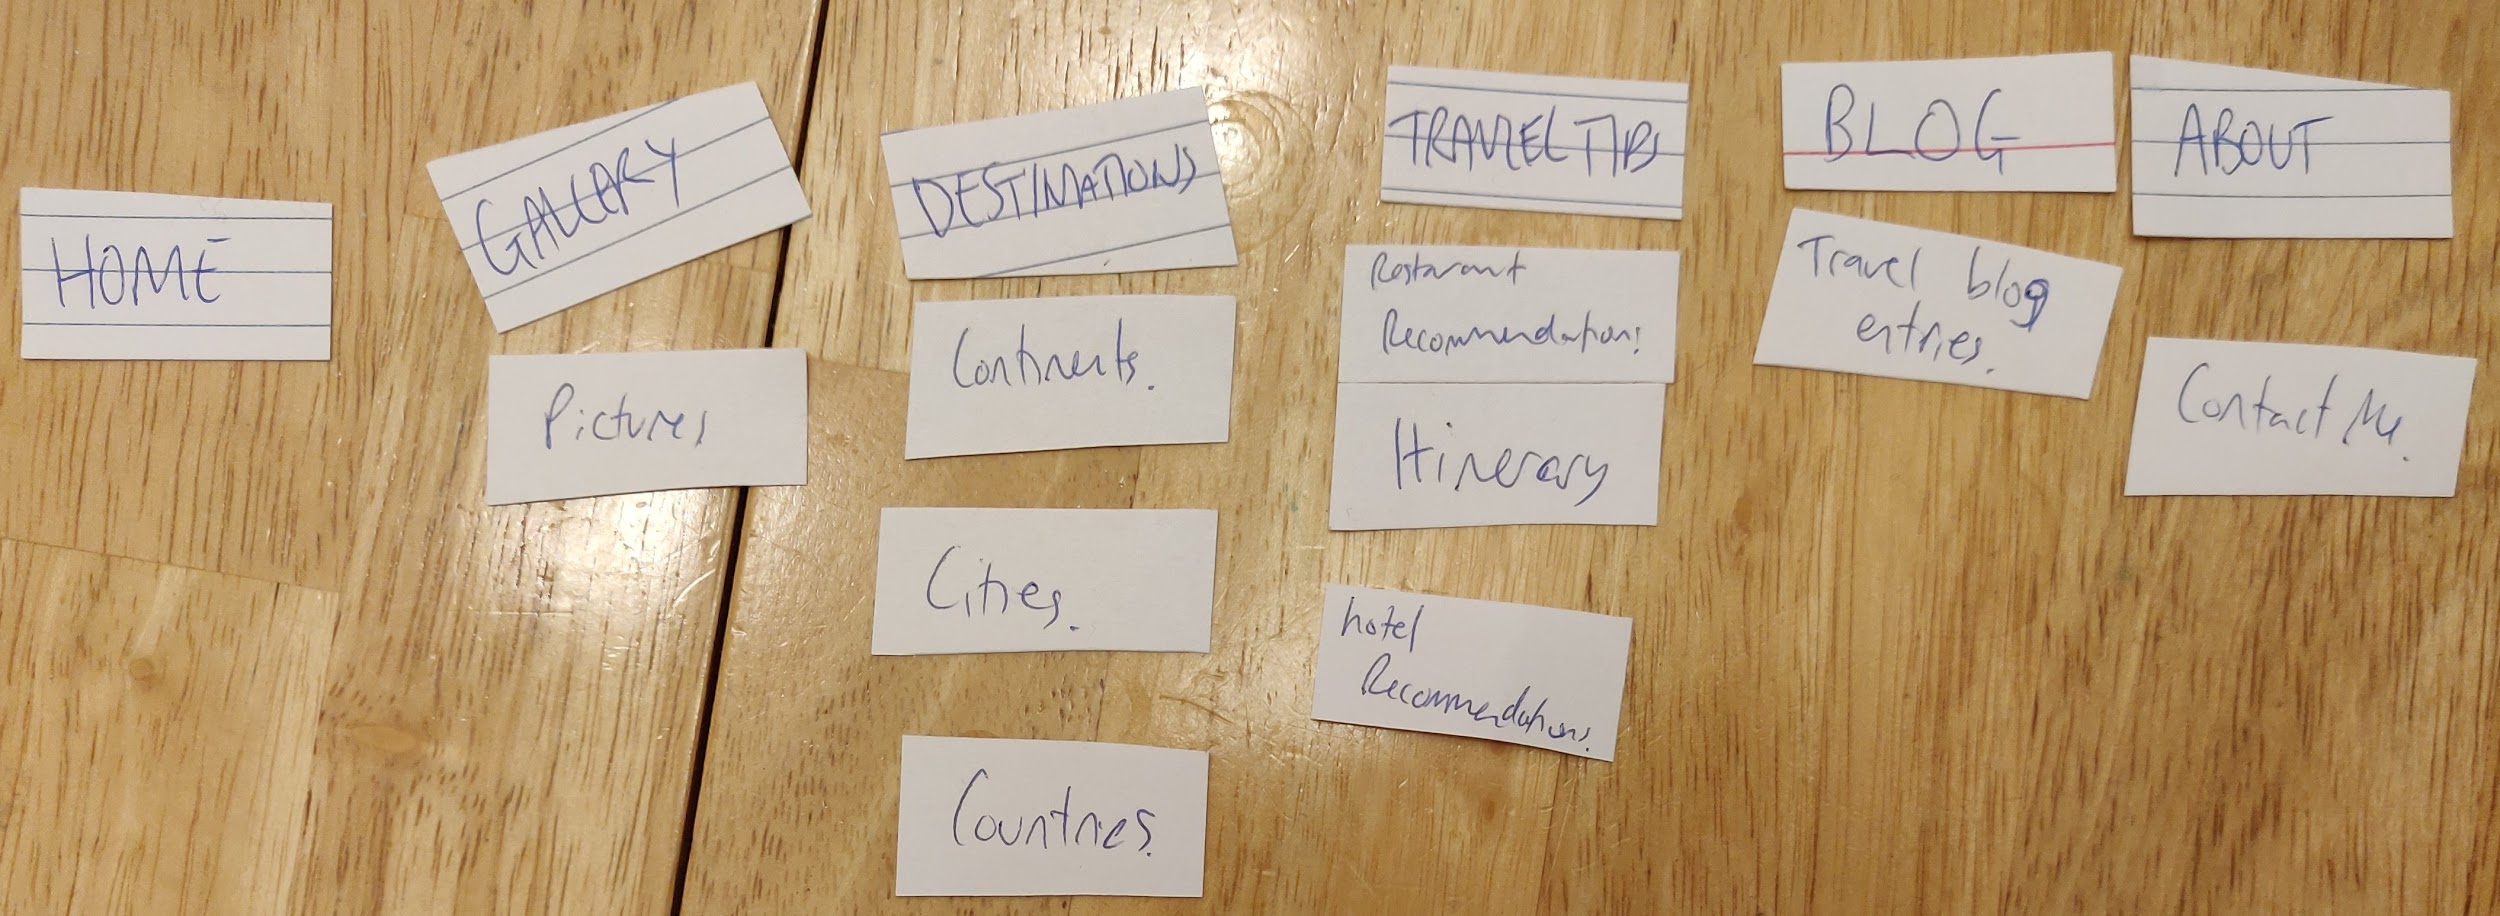 HOME
GALLERY
Pictures
DESTINATIONS
Continents.
Cities.
Countries.
TRAVEL TIPS
Restaurant
Recommendations
Itinerary
hotel
Recommendations
BLOG
Travel blog
entries.
ABOUT
Contact Me.